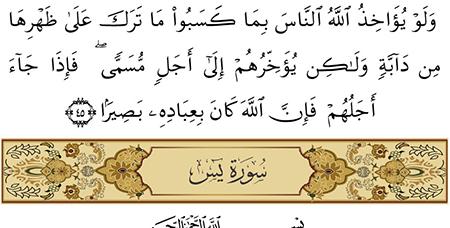 وَلَوْ يُؤَاخِذُ ٱللَّهُ ٱلنَّاسَ بِمَا كَسَبُوا۟ مَا تَرَكَ عَلَىٰ ظَهْرِهَا
مِن دَآبَّةٍ وَلَٰكِن يُؤَخِّرُهُمْ إِلَىٰٓ أَجَلٍ مُّسَمًّى ۖ فَإِذَا جَآءَ
أَجَلُهُمْ فَإِنَّ ٱللَّهَ كَانَ بِعِبَادِهِۦ بَصِيرًۢا ٤٥
سُورَةُ يسٓ
بِسْمِ ٱللَّهِ ٱلرَّحْمَٰنِ ٱلرَّحِيمِ